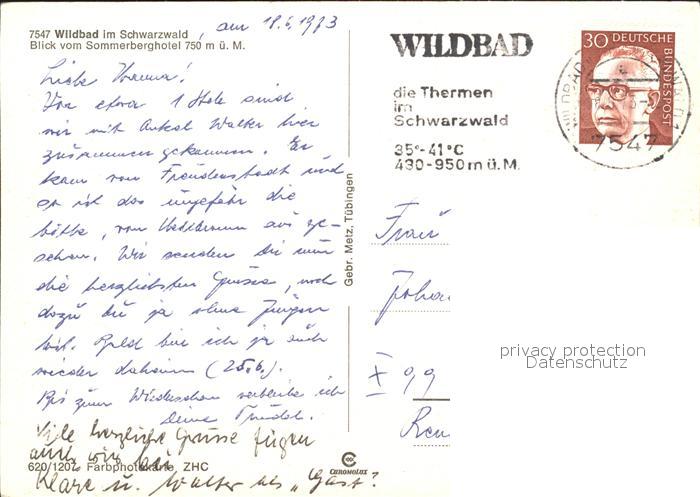 7547 Wildbad im Schwarzwald, am 18.6.1973
Blick vom Sommerberghotel 750 m ü. M.
Liebe Hanna!
Vor etwa 1 Std. sind
wir mit Onkel Walter hier
zusammen gekommen. Er
kam von Freudenstadt und
so ist das ungefähr die
Hälfte, von Heilbronn aus ge-
sehen. Wir senden Dir nun
die herzlichsten Grüsse, noch
dazu Du ja ohne Jürgen
bist. Bald bin ich ja auch
wieder daheim (25.6.).
Bis zum Wiedersehen verbleibe ich
Deine Trudel.
Viele herzliche Grüsse fügen
auch wir bei
Klare u. Walter als „Gast"?
620/1207 Farbphotokarte, ZHC
Gebr. Metz, Tübingen
CHROMOLUX
WILDBAD
die Thermen
im
Schwarzwald
35°-41°C
430-950m ü.M.
30 DEUTSCHE
BUNDESPOST
7547
Frau
Johan
X 99
privacy protection
Datenschutz